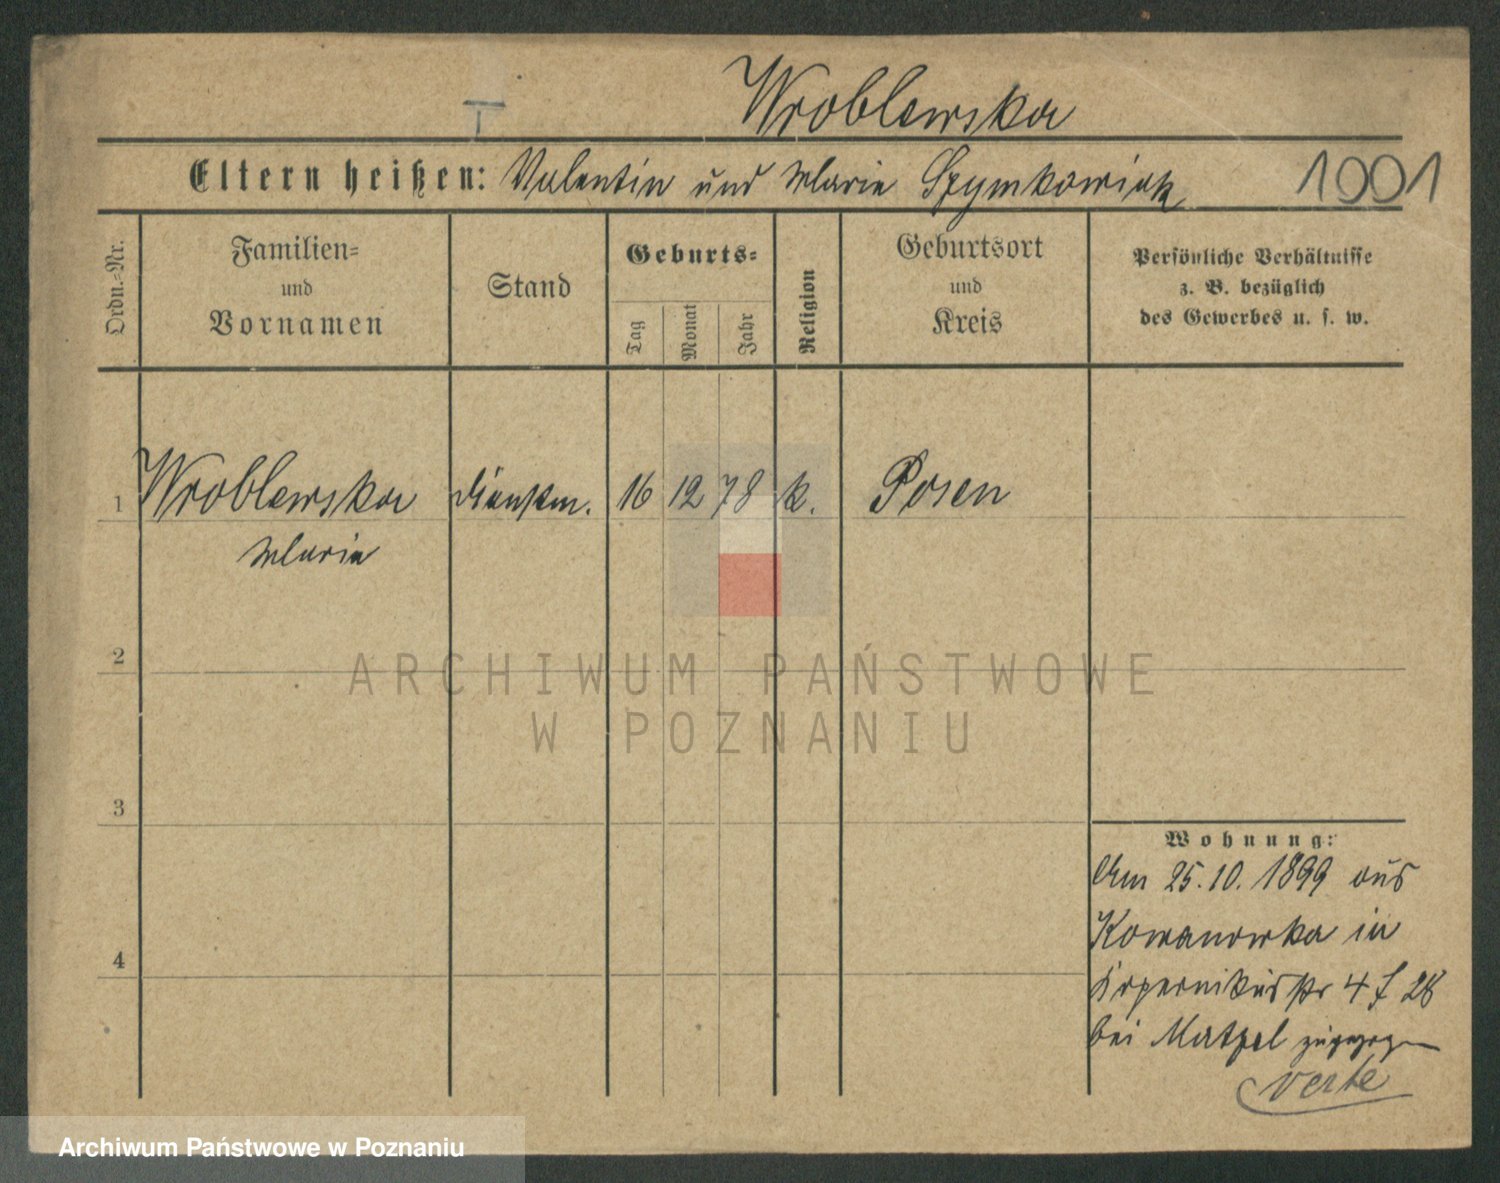 Wroblewska
T
Eltern heißen: Valentin und Marie Szymkowiak
1001
Ordn.-Nr.
Familien-
und
Vornamen
Stand
Geburts-
Tag
Monat
Jahr
Religion
Geburtsort
und
Kreis
Persönliche Verhältnisse
z. B. bezüglich
des Gewerbes u. s. w.
1 Wroblewska Dienstm. 16 12 78 k. Posen
Marie
2
3
4
Wohnung:
Am 25.10.1899 aus
Kowanowka in
Kopernikusstr 4 28
bei zugezogen
verte
ARCHIWUM PAŃSTWOWE
W POZNANIU
Archiwum Państwowe w Poznaniu